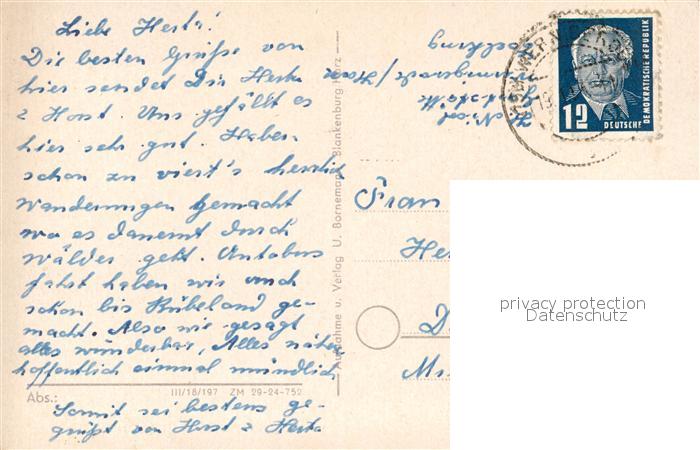 Liebe Herta!
Die besten Grüße von
hier sendet Dir Herta
u Horst. Uns gefällt es
hier sehr gut. Haben
schon zu viert's herrlich
Wanderungen gemacht
wo es dauernt durch
wälder geht. Autobus
fahrt haben wir auch
schon bis Rübeland ge-
macht. Also wie gesagt
alles wunderbar, Alles näher
hoffentlich einmal mündlich
Abs.:
III/18/197 ZM 29-24-752
Somit sei bestens ge-
grüßt von Horst u Herta
Aufnahme u. Verlag U. Bornemann, Blankenburg/Harz
12
DEUTSCHE
DEMOKRATISCHE REPUBLIK
Frau
He
D
privacy protection
Datenschutz